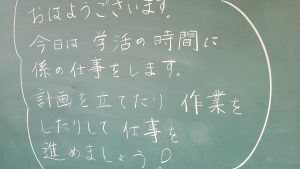 おはようございます。
今日は 学活の時間に
係の仕事をします。
計画を立てたり 作業を
したりして 仕事を
進めましょう!